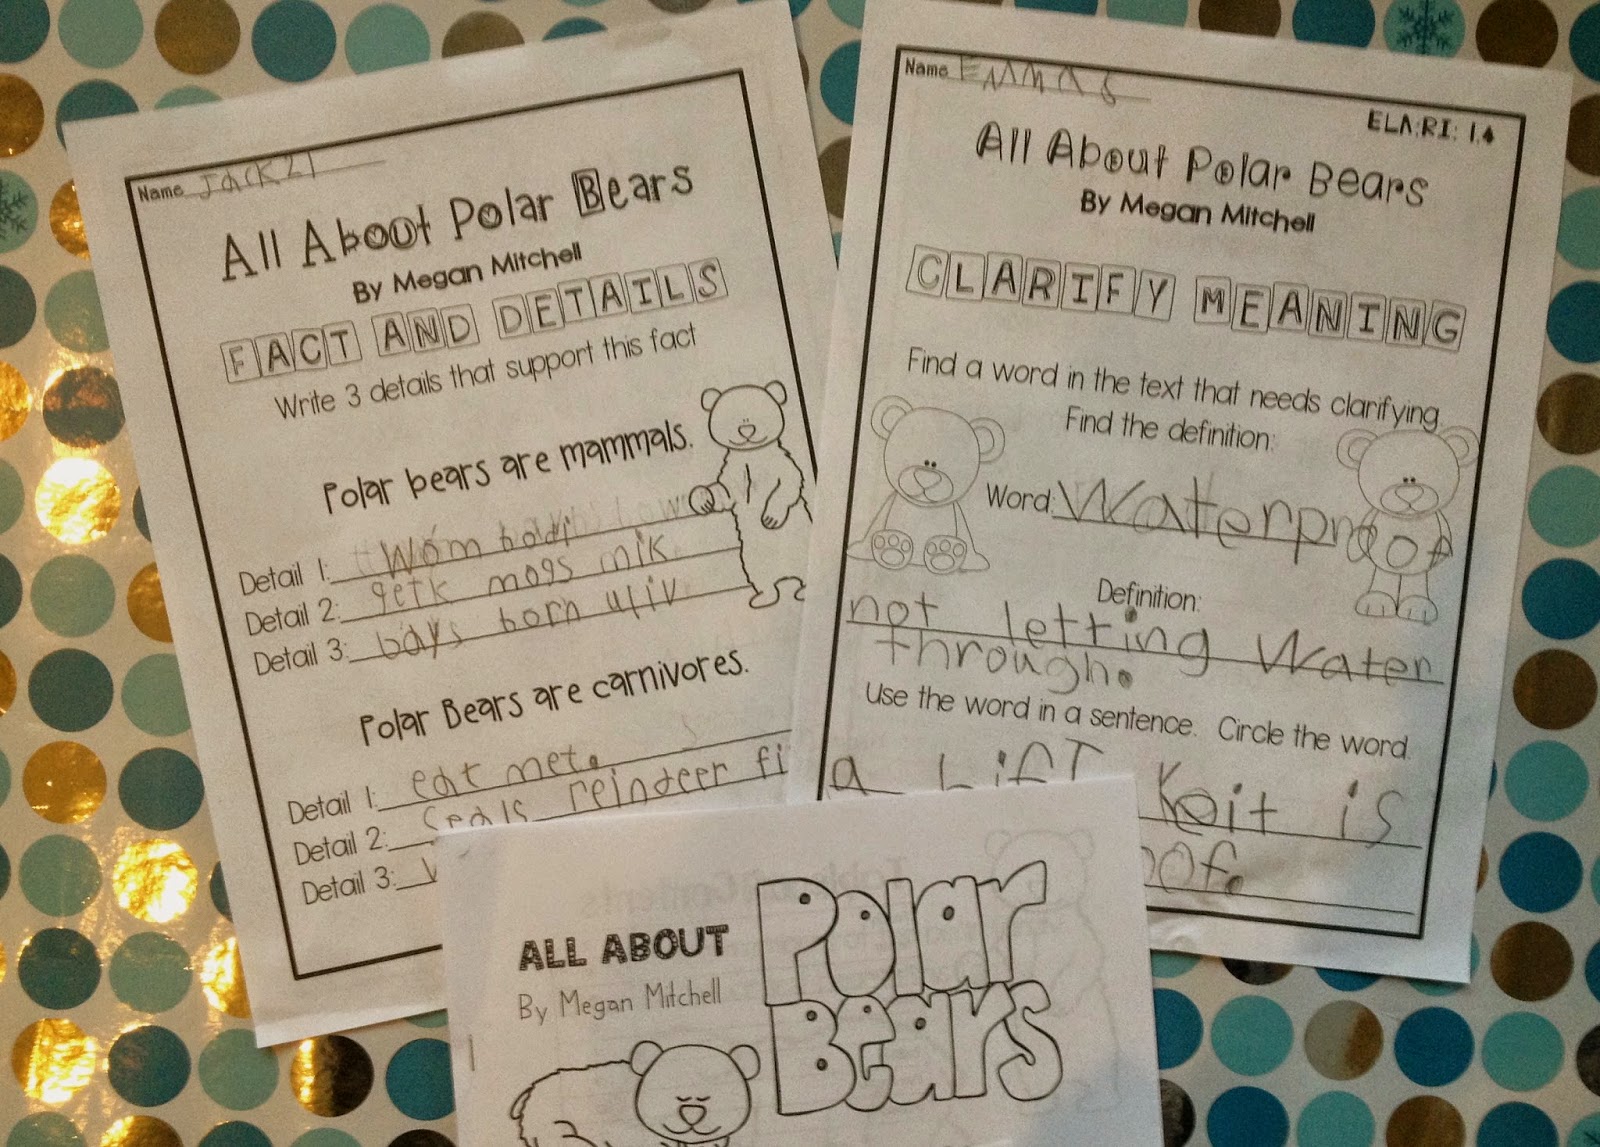 Name Jack 21
All About Polar Bears
By Megan Mitchell
FACT AND DETAILS
Write 3 details that support this fact
Polar bears are mammals.
Detail 1: Wom bodi
Detail 2: getk mogs mik
Detail 3: bays born uliv
Polar Bears are carnivores.
Detail 1: eat met.
Detail 2: Seals reindeer fi
Detail 3:
Name Emma
ELA:RI: 1.4
All About Polar Bears
By Megan Mitchell
CLARIFY MEANING
Find a word in the text that needs clarifying.
Find the definition:
Word: Waterproof
Definition:
not letting Water
through.
Use the word in a sentence. Circle the word.
a is
oof.
ALL ABOUT
By Megan Mitchell
POLAR
BEARS